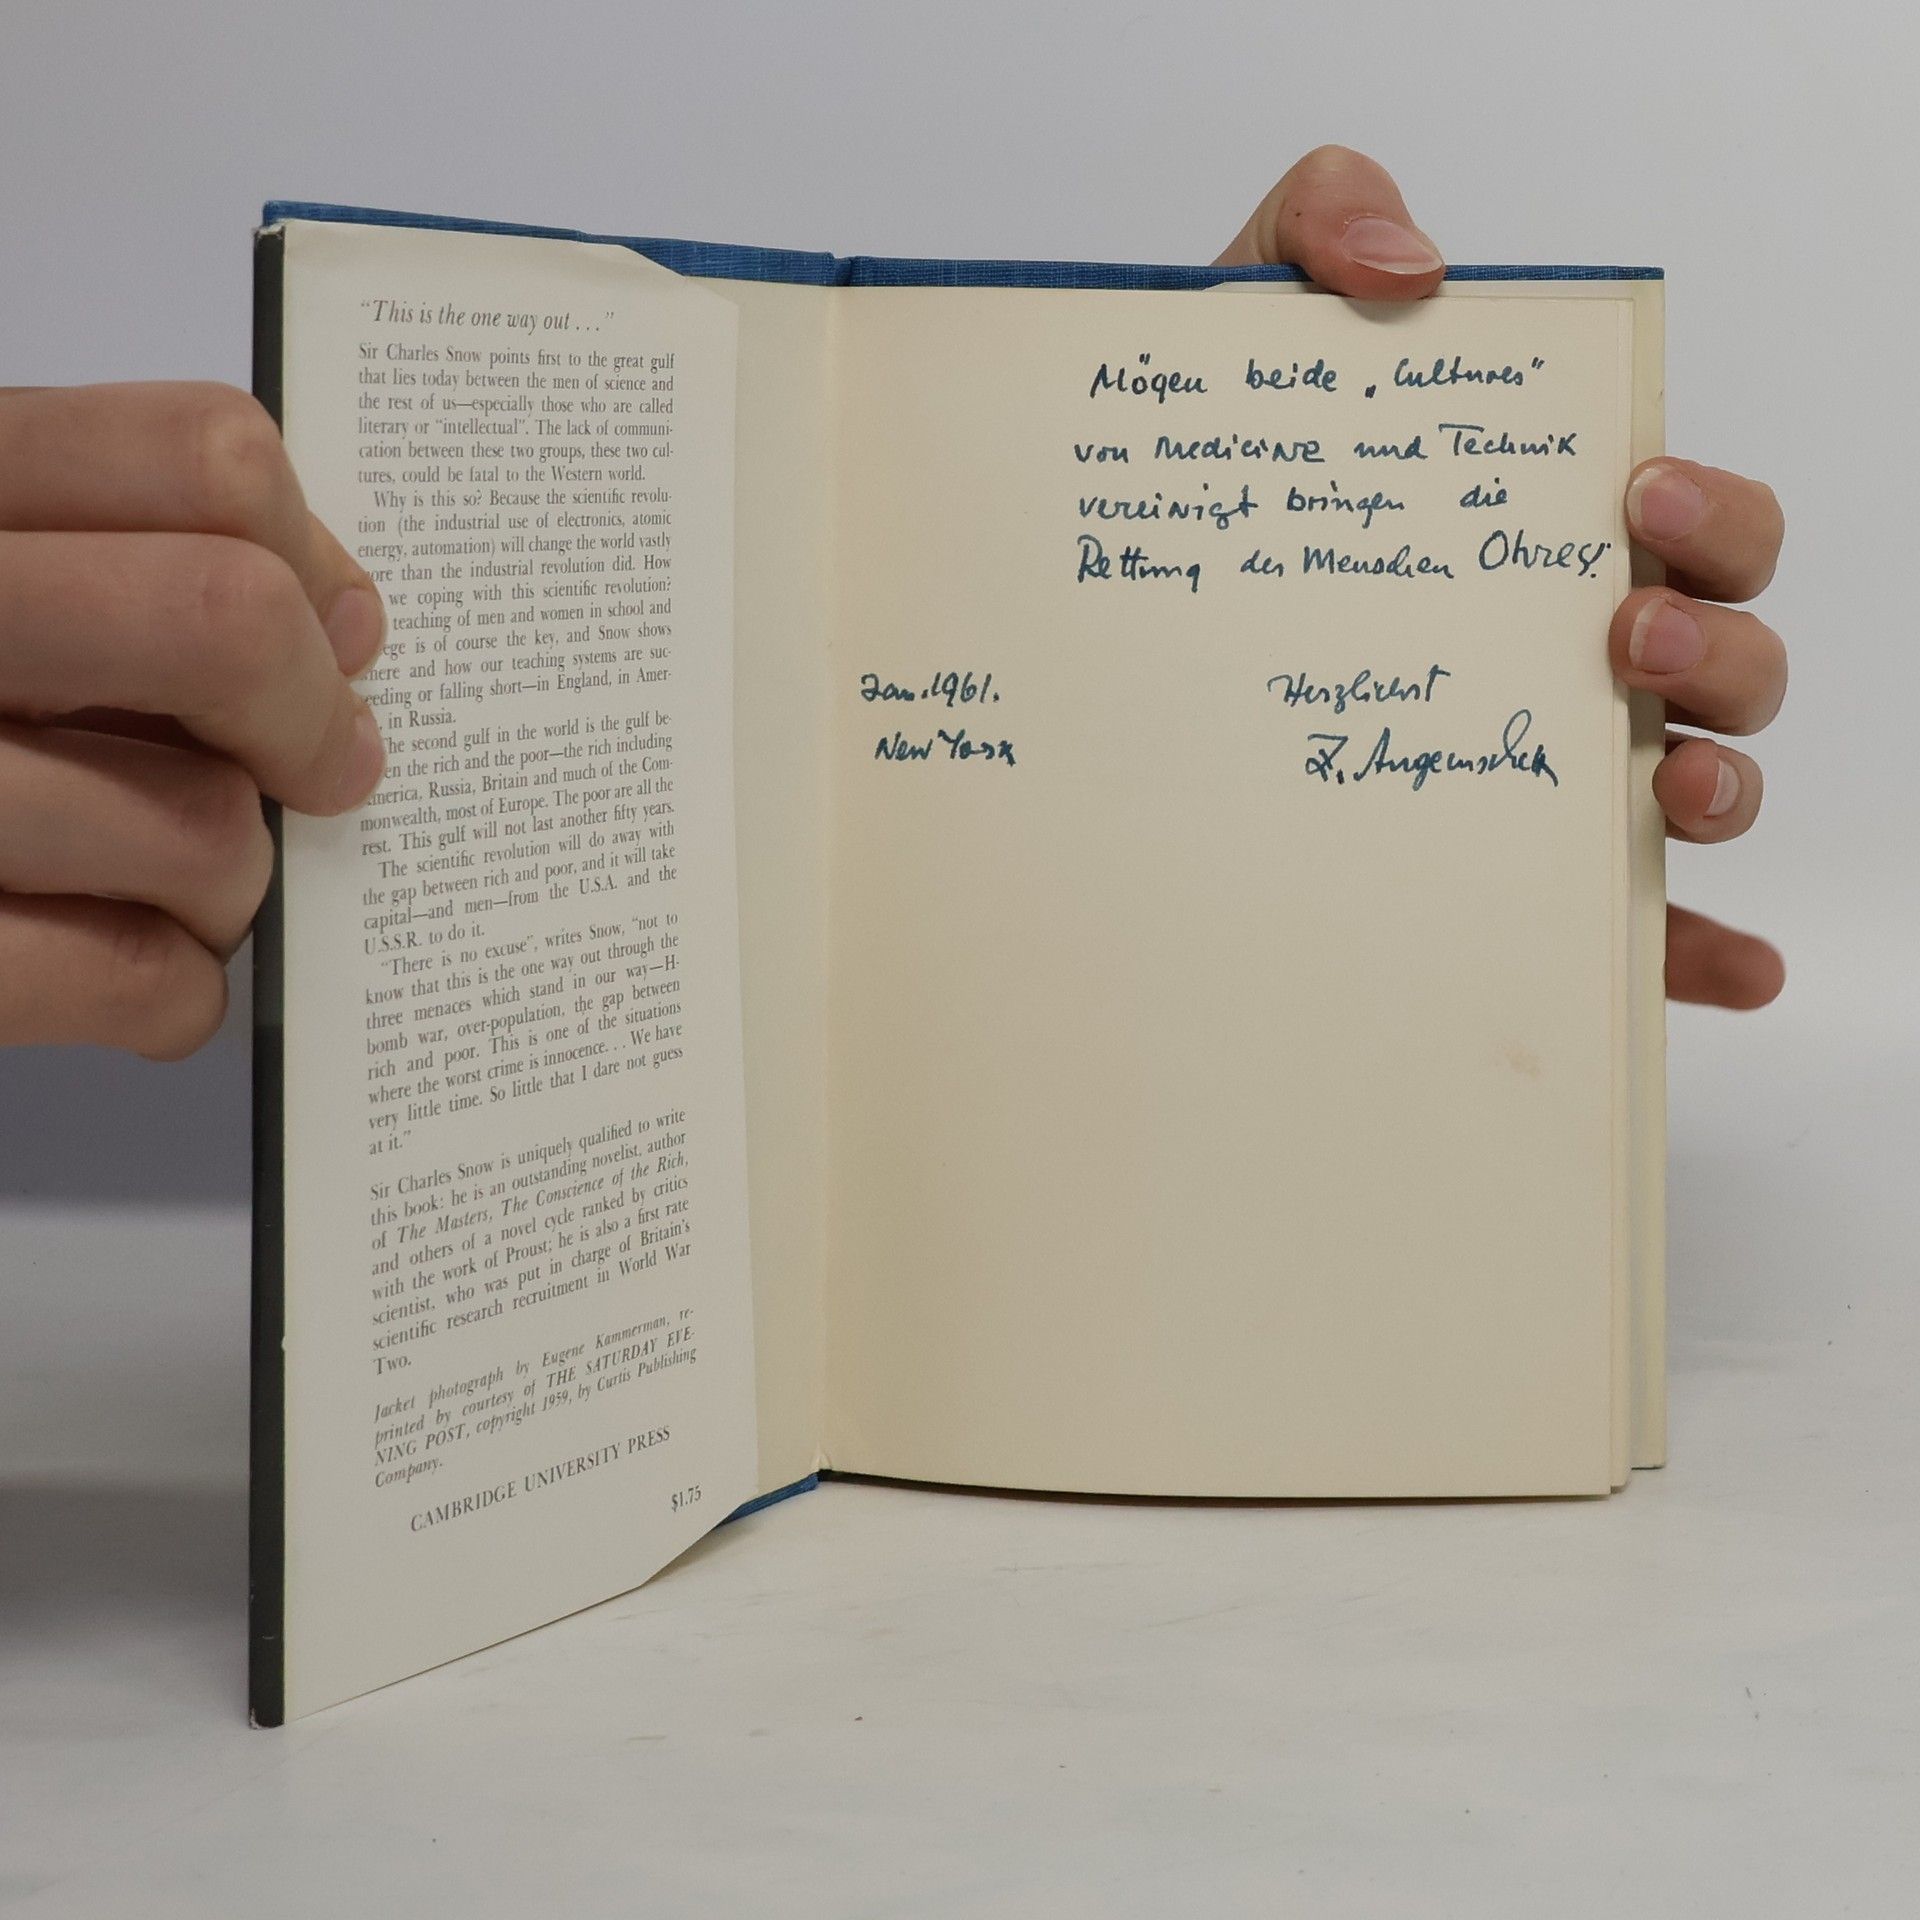 “This is the one way out . . .”
Sir Charles Snow points first to the great gulf
that lies today between the men of science and
the rest of us—especially those who are called
literary or “intellectual”. The lack of communi-
cation between these two groups, these two cul-
tures, could be fatal to the Western world.
Why is this so? Because the scientific revolu-
tion (the industrial use of electronics, atomic
energy, automation) will change the world vastly
ore than the industrial revolution did. How
we coping with this scientific revolution?
teaching of men and women in school and
ege is of course the key, and Snow shows
here and how our teaching systems are suc-
eeding or falling short—in England, in Amer-
, in Russia.
The second gulf in the world is the gulf be-
en the rich and the poor—the rich including
merica, Russia, Britain and much of the Com-
monwealth, most of Europe. The poor are all the
rest. This gulf will not last another fifty years.
The scientific revolution will do away with
the gap between rich and poor, and it will take
capital—and men—from the U.S.A. and the
U.S.S.R. to do it.
“There is no excuse”, writes Snow, “not to
know that this is the one way out through the
three menaces which stand in our way—H-
bomb war, over-population, the gap between
rich and poor. This is one of the situations
where the worst crime is innocence. . . We have
very little time. So little that I dare not guess
at it.”
Sir Charles Snow is uniquely qualified to write
this book: he is an outstanding novelist, author
of The Masters, The Conscience of the Rich,
and others of a novel cycle ranked by critics
with the work of Proust; he is also a first rate
scientist, who was put in charge of Britain's
scientific research recruitment in World War
Two.
Jacket photograph by Eugene Kammerman, re-
printed by courtesy of THE SATURDAY EVE-
NING POST, copyright 1959, by Curtis Publishing
Company.
CAMBRIDGE UNIVERSITY PRESS
$1.75
Mögen beide „Cultures“
von Medicine und Technik
vereinigt bringen die
Rettung des Menschen Ohres!
Jan. 1961.
New York
Herzlichst